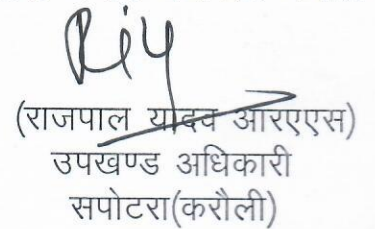 (राजपाल यादव आरएएस)
उपखण्ड अधिकारी
सपोटरा(करौली)